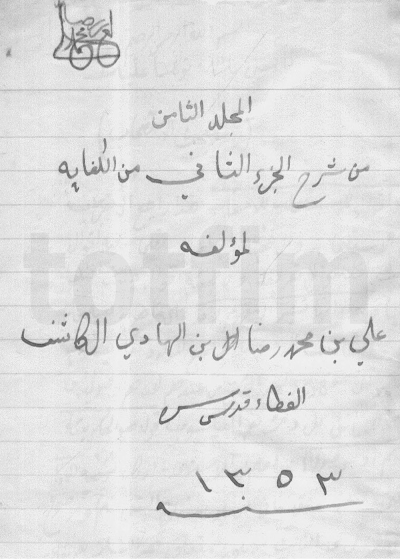 المجلد الثامن
من شرح الجزء الثاني من الكفايه
لمؤلفه
علي بن محمد رضا بن الهادي ال كاشف
الغطاء قدس سره
١٣٥٣
سنه
totfim